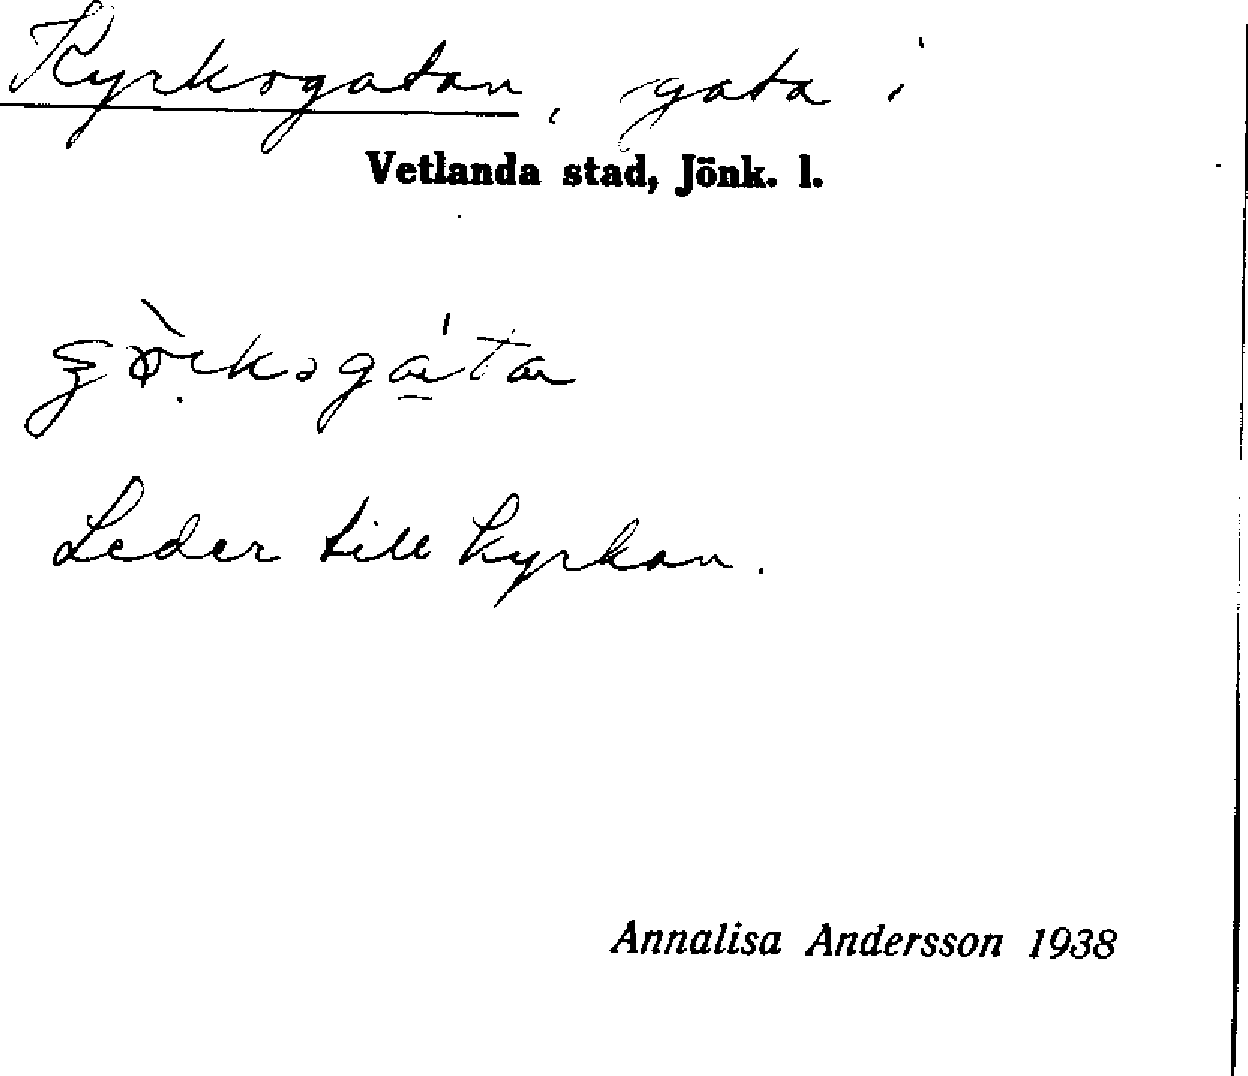 Kyrkogatan, gata i
Vetlanda stad, Jönk. l.
Leder till kyrkan.
Annalisa Andersson 1938